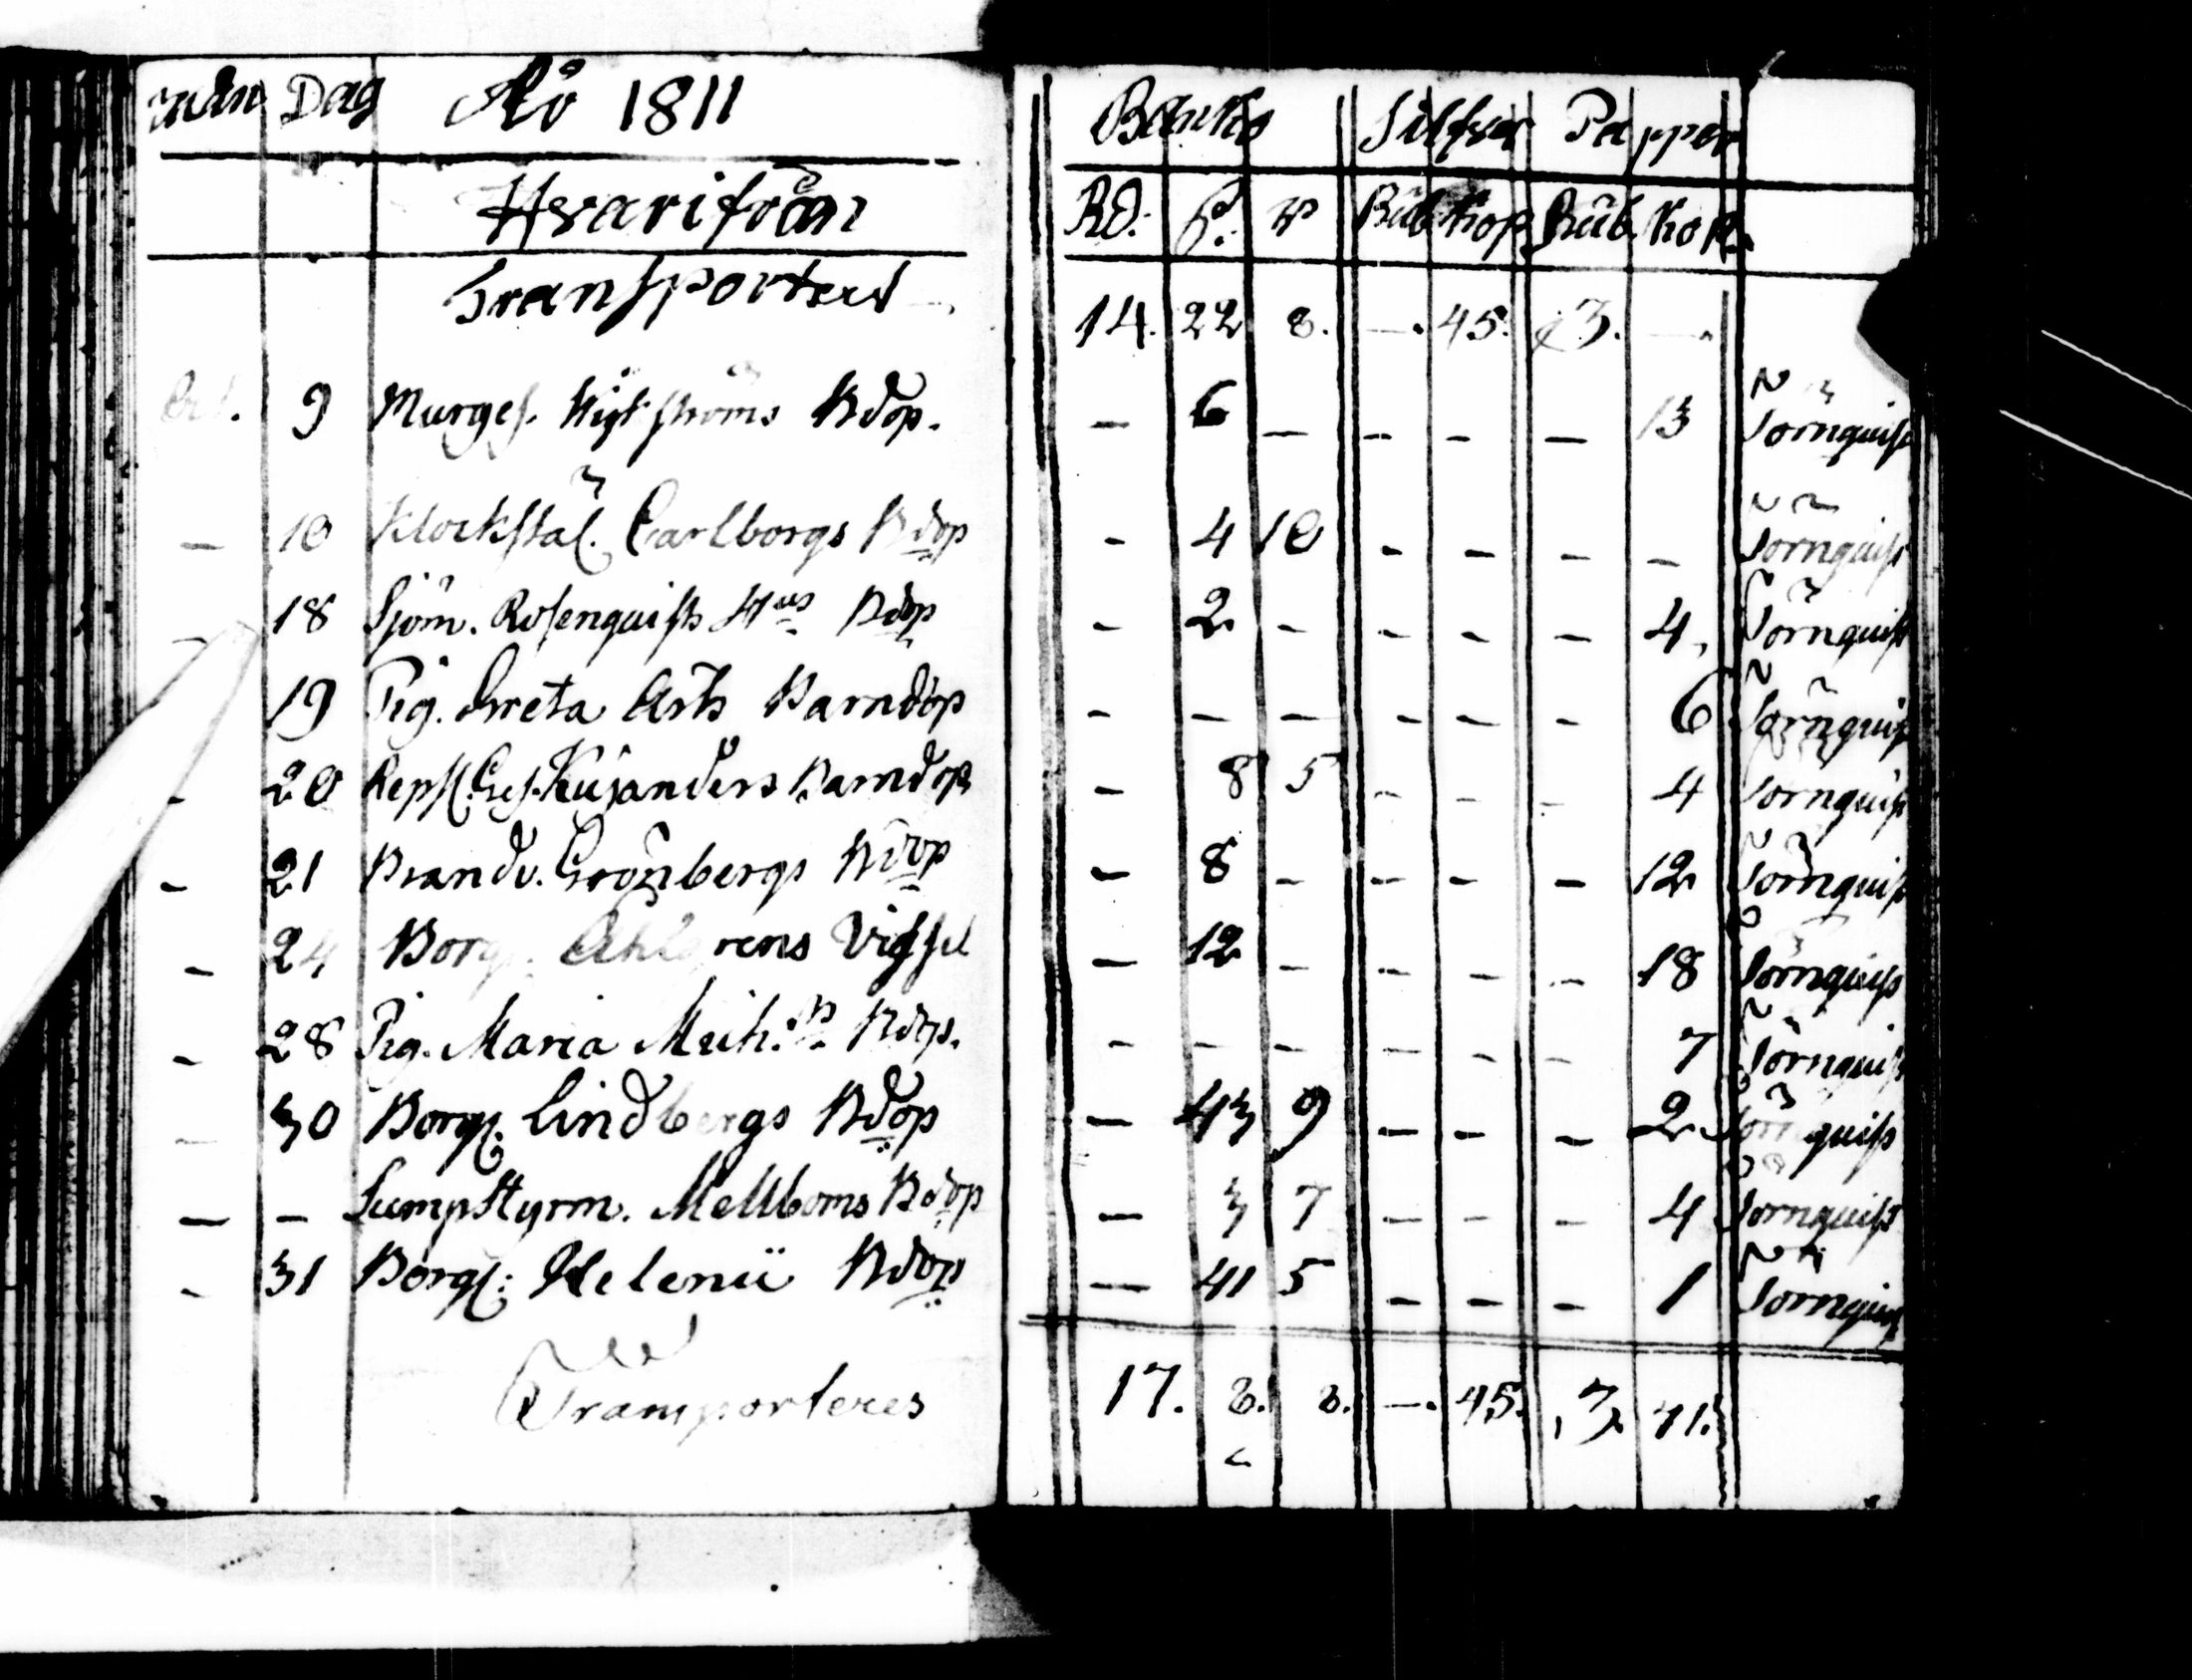 Mån Dag Åo 1811 Banko Silfver Papper
Hvarifrån Rd. ß. r Rub Kop Rub. Kop.
Transporterad 14. 22 8. —. 45. 3. —.
Oct. 9 Murges. Wykströms Bdop. — 6 — — — — 13 Törnquist
— 10 Klockstäl. Carlborgs Bdop - 4 10 - - - - Törnquist
18 Sjöm. Rosenquists Hus Bdop - 2 - - - - 4. Törnquist
19 Pig. Greta Barndop - - - - - - 6 Törnquist
- 20 Repsl. Ges. Kujanders Barndop - 8 5 - - - 4 Törnquist
- 21 Brandv. Grönbergs Bdop - 8 - - - - 12 Törnquist
- 24 Borg. Ahlgrens Vigsel - 12 - - - - 18 Törnquist
- 28 Pig. Maria Mich. Bdop. - - - - - - 7 Törnquist
- 30 Borg. Lindbergs Bdop - 43 9 - - - 2 Törnquist
— - Lumpstyrm. Mellboms Bdop - 3 7 - - - 4 Törnquist
- 31 Borg: Helenii Bdop — 41 5 - - - 1 Törnquist
Transporteres 17. 8. 8. —. 45. 3. 71.